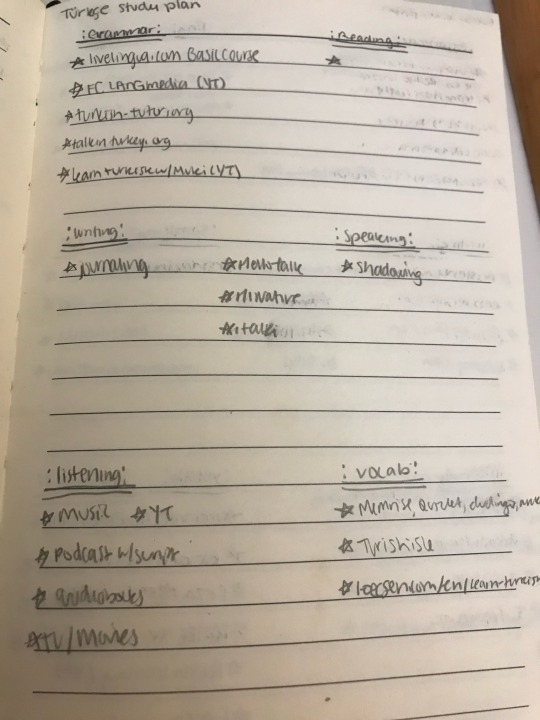 Türkçe study plan
:Grammar: :Reading:
☆ livelingua.com Basic Course ☆
☆ FC LANGmedia (YT)
☆ turkish-tutor.org
☆ talkinturkey.org
☆ learn turkish w/ Muki (YT)
:writing: :speaking:
☆ journaling ☆ Hellotalk ☆ shadowing
☆ HiNative
☆ italki
:listening: :vocab:
☆ Music ☆ YT ☆ Memrise, Quizlet, duolingo,
☆ Podcast w/script
☆ audiobooks ☆ loecsen.com/en/learn-turkish
☆ TV/Movies